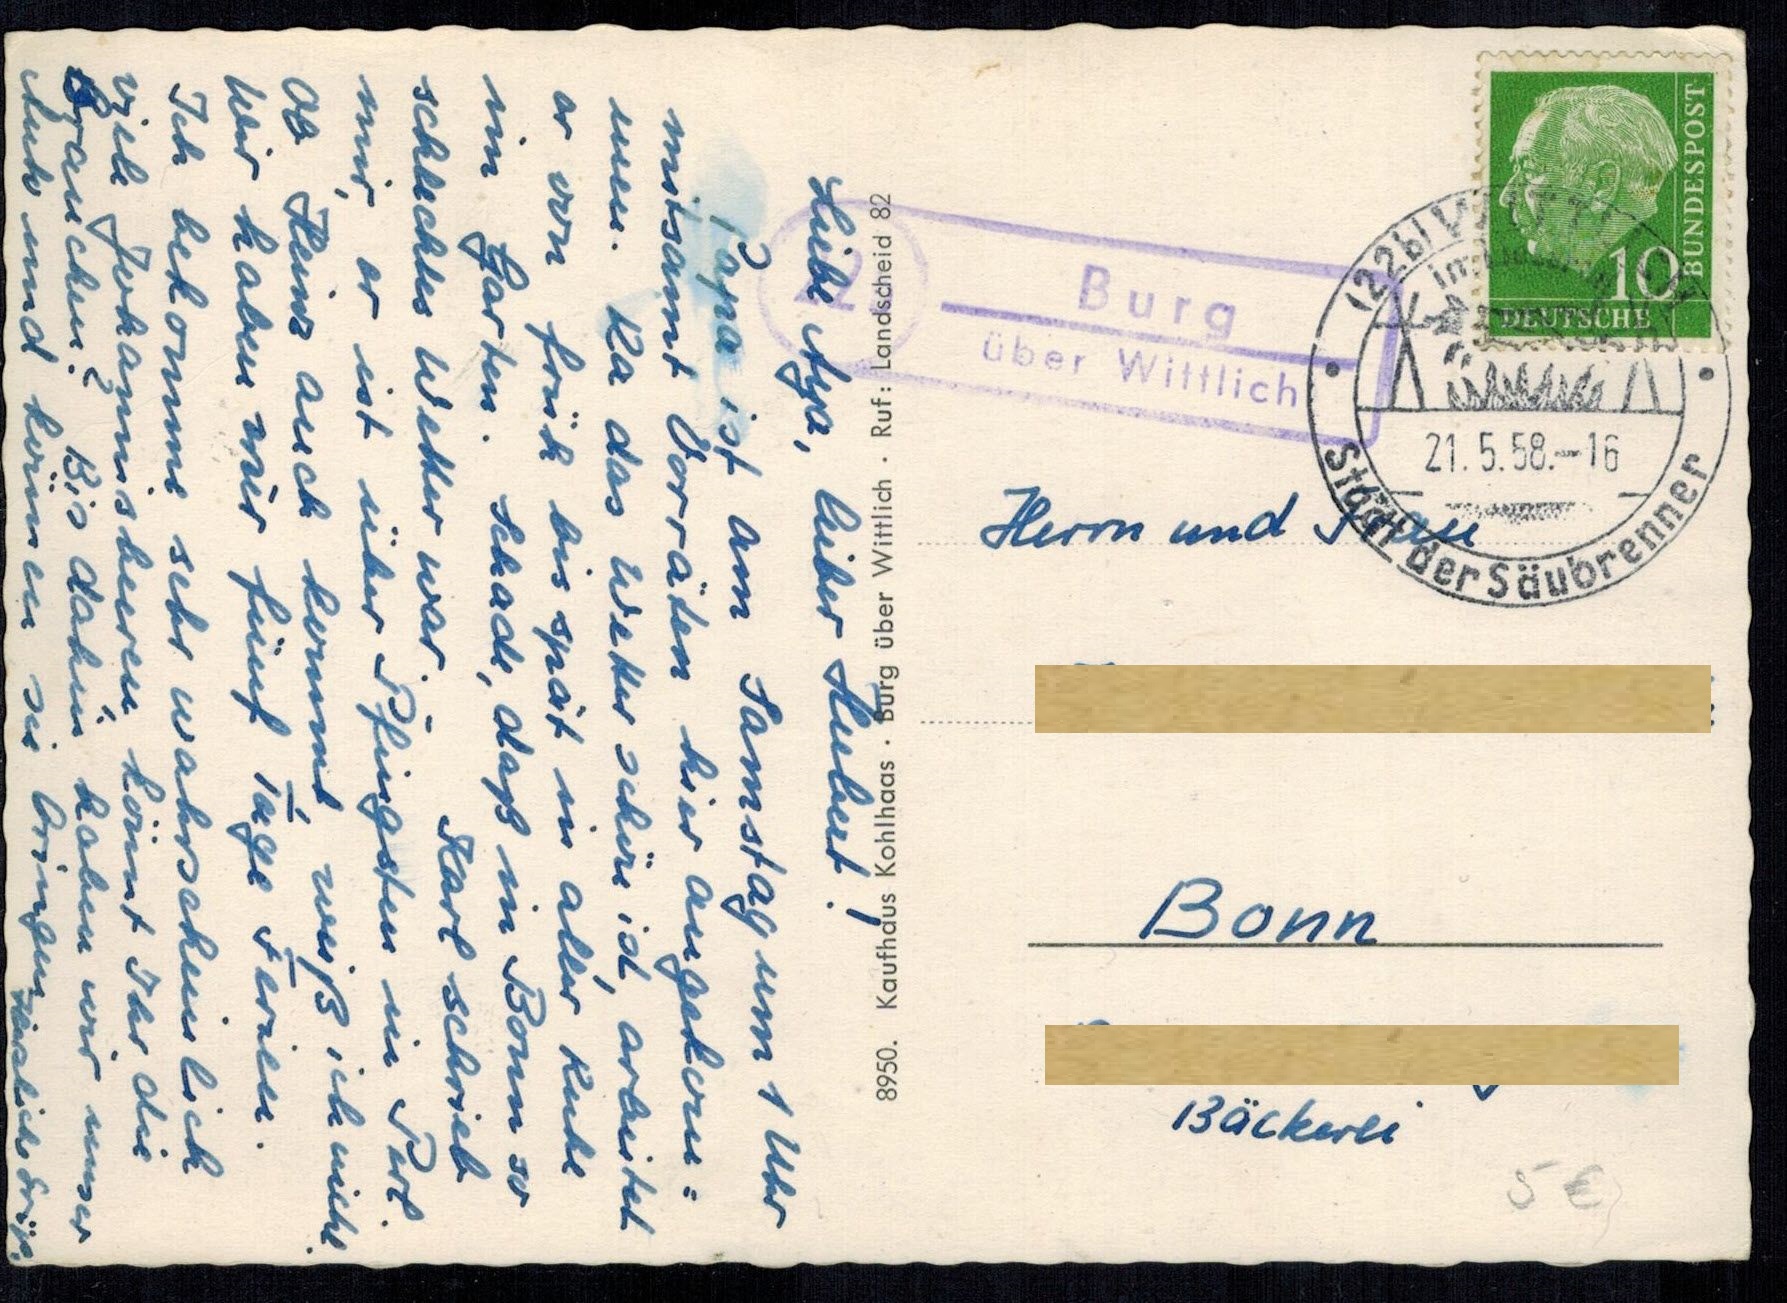 Liebe Aga, lieber Hubert!
Papa ist am Samstag um 1 Uhr
mitsamt Vorräten hier angekom=
men. Da das Wetter schön ist, arbeitet
er von früh bis spät in aller Ruhe
im Garten. Schade, daß in Bonn so
schlechtes Wetter war. Karl schrieb
mir, er ist über Pfingsten in
Ob Heinz auch kommt, weiß ich nicht.
Wir haben nur fünf Tage Ferien.
Ich bekomme sehr wahrscheinlich
viele Johannisbeeren, könnt Ihr die
brauchen? Bis dahin haben wir unser
Auto und können sie bringen. Herzliche Grüße
8950. Kaufhaus Kohlhaas · Burg über Wittlich · Ruf: Landscheid 82
22
Burg
über Wittlich
DEUTSCHE
BUNDESPOST
10
(22b) WITTLICH
im
21.5.58.-16
Stadt der Säubrenner
Herrn und Frau
Bonn
Bäckerei
5 €